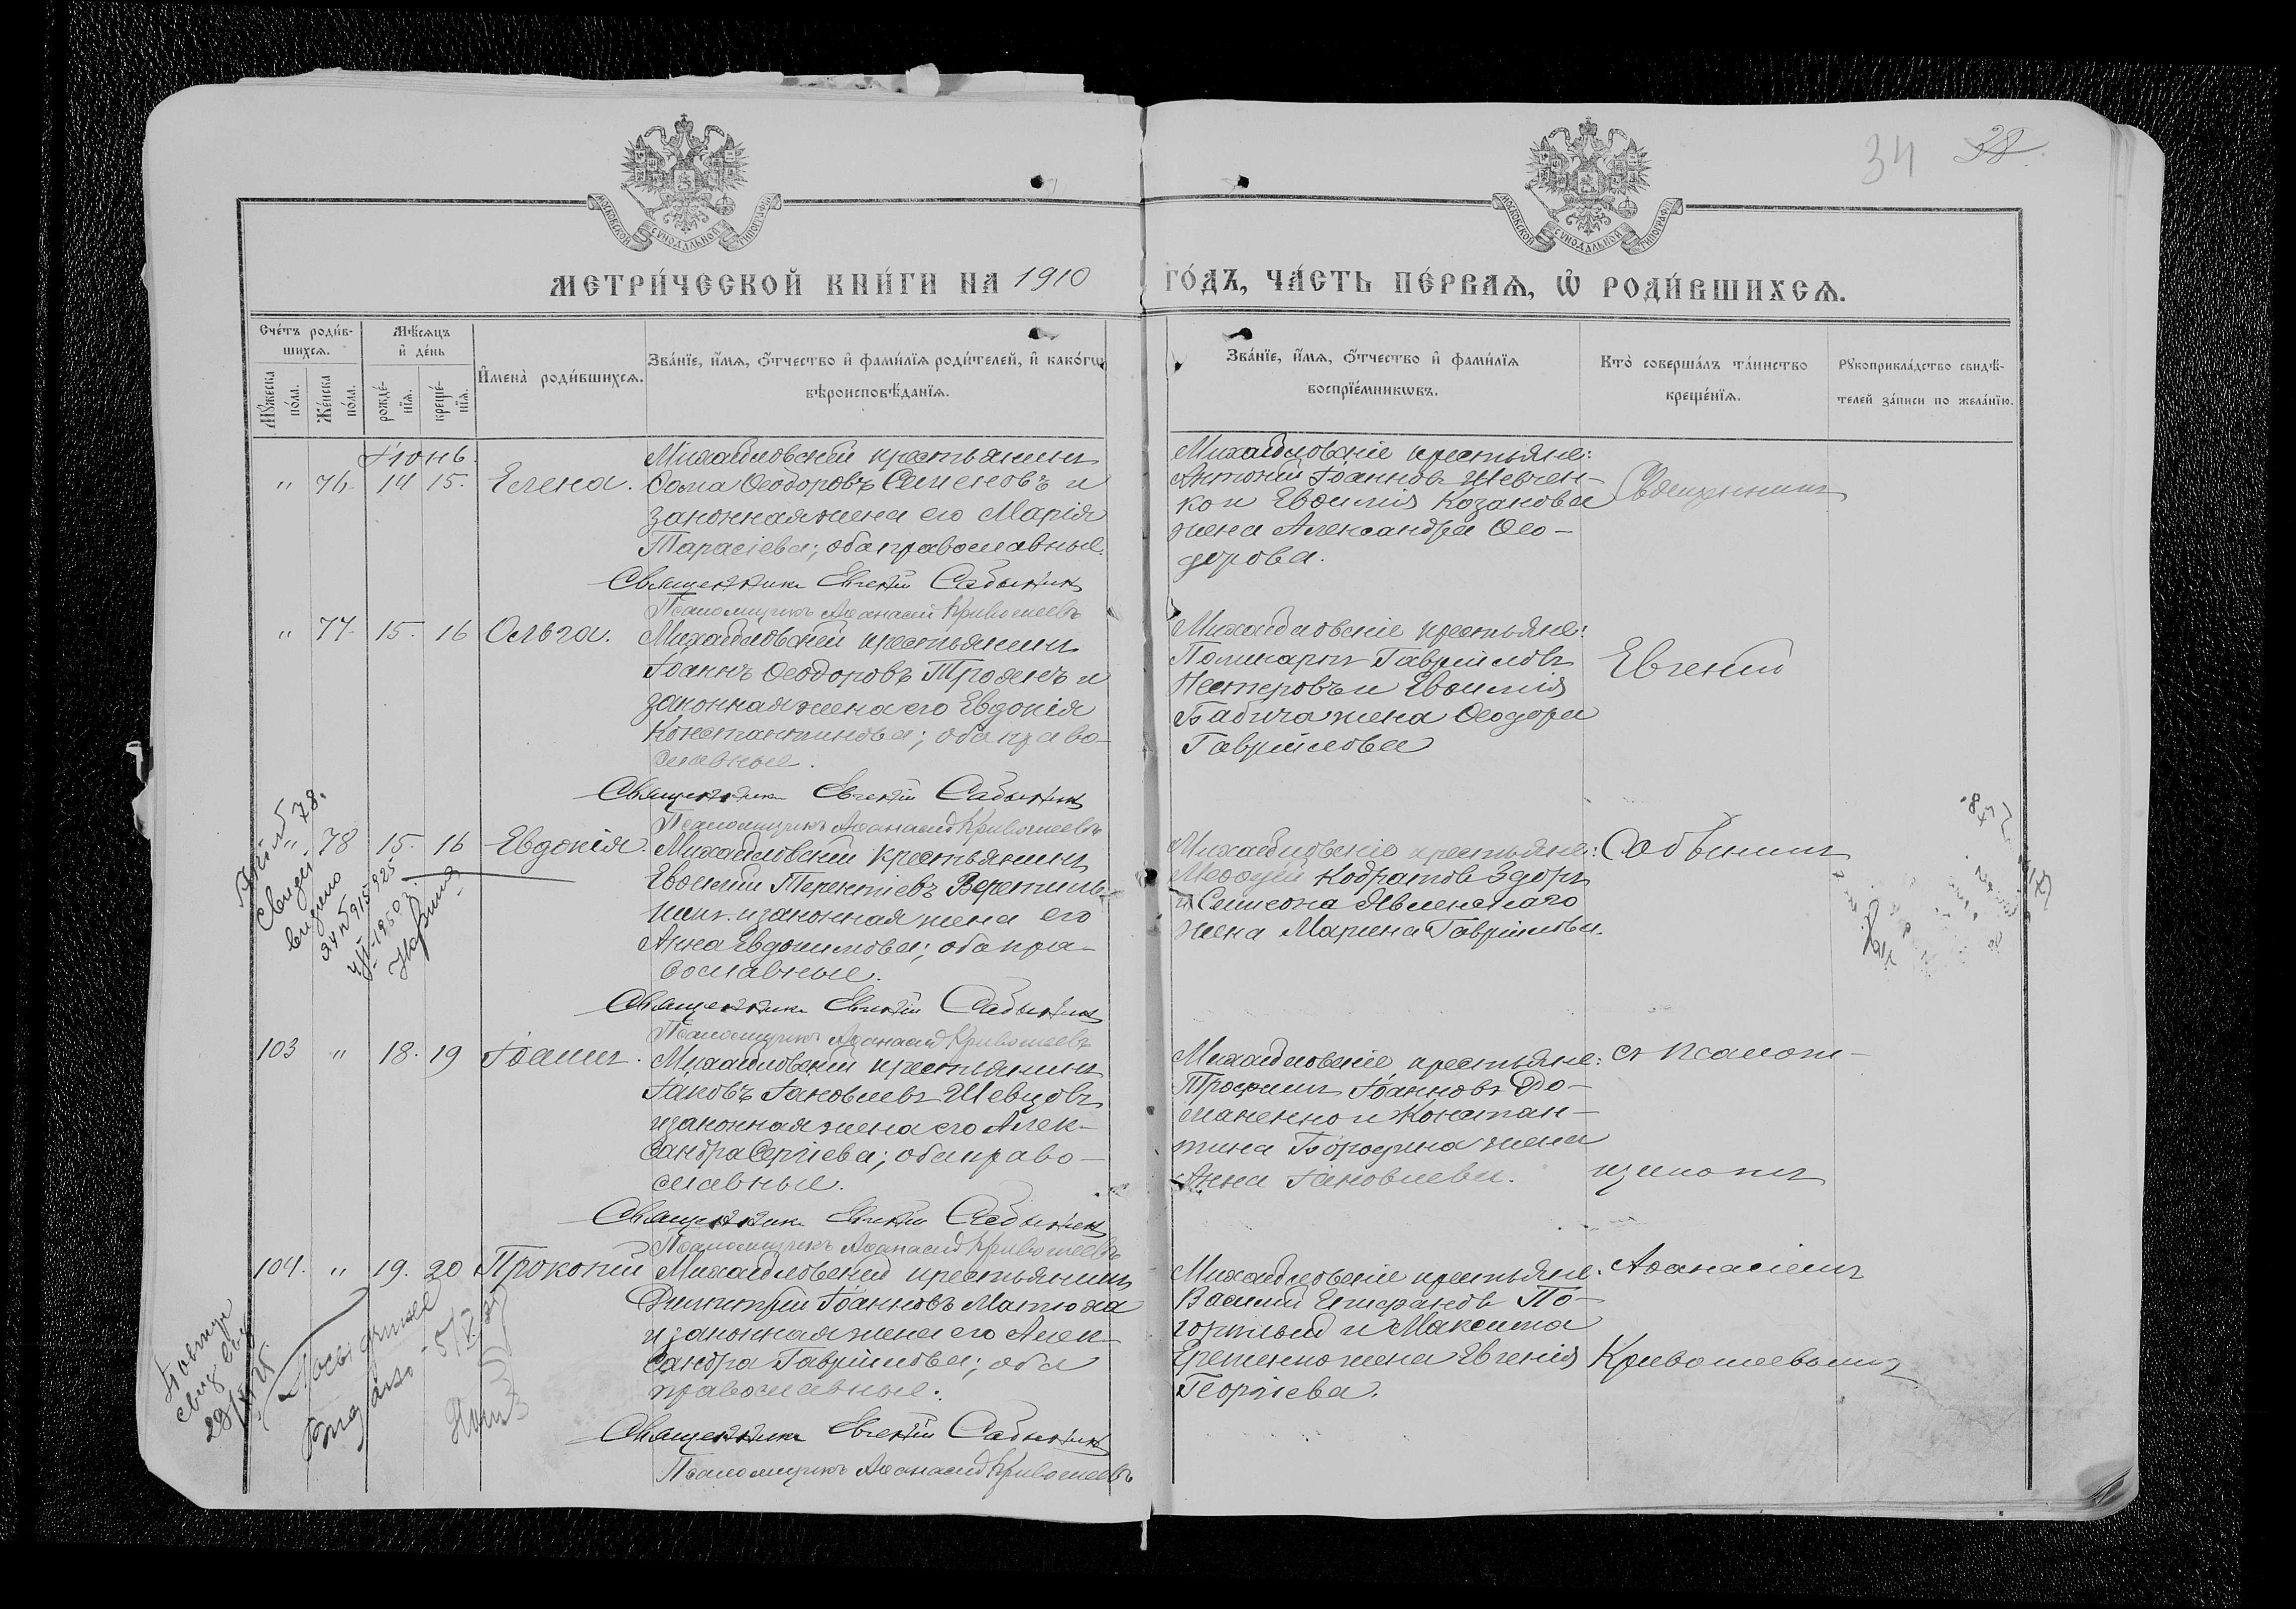 34 38
МОСКОВСКОЙ СѴНОДАЛЬНОЙ ТИПОГРАФІИ
МОСКОВСКОЙ СѴНОДАЛЬНОЙ ТИПОГРАФІИ
МЕТРИ́ЧЕСКОЙ КНИ́ГИ НА 1910 ГО́ДЪ, ЧА́СТЬ ПЕ́РВАѦ, Ѡ҆ РОДИ́ВШИХСѦ.
Сче́тъ роди́в-
шихсѧ.
Мꙋжеска
по́ла.
Же́нска
по́ла.
Мѣ́сѧцъ
и҆ де́нь
рожде́-
нїѧ.
креще́-
нїѧ.
И҆мена̀ роди́вшихсѧ.
Зва́нїе, и҆́мѧ, ѻ҆́тчество и҆ фами́лїѧ роди́телей, и҆ како́гѡ
вѣроисповѣ́данїѧ.
Зва́нїе, и҆́мѧ, ѻ҆́тчество и҆ фами́лїѧ
воспрїе́мникѡвъ.
Кто̀ соверша́лъ та́инство
креще́нїѧ.
Рꙋкоприкла́дство свидѣ́-
телей за́писи по жела́нїю.
Іюнь.
" 76. 14 15. Елена.
Михайловскій крестьянинъ
Ѳома Ѳеодоровъ Семеновъ и
законная жена его Марія
Тарасіева; оба православные.
Священникъ Евгеній Садынинъ
Псаломщикъ Аѳанасій Кривошеевъ
Михайловскіе крестьяне:
Антоній Іоанновъ Шевчен-
ко и Евѳимія Козакова
жена Александра Ѳео-
дорова.
Священникъ
" 77. 15. 16 Ольга.
Михайловскій крестьянинъ
Іоаннъ Ѳеодоровъ Троянъ и
законная жена его Евдокія
Константинова; оба право-
славные.
Священникъ Евгеній Садынинъ
Псаломщикъ Аѳанасій Кривошеевъ
Михайловскіе крестьяне:
Поликарпъ Гавріиловъ
Нестеровъ и Евѳимія
Бабича жена Ѳеодора
Гавріилова
Евгеній
" 78 15. 16 Евдокія.
Михайловскій крестьянинъ
Евѳимій Терентіевъ Веретиль-
никъ и законная жена его
Анна Евдокимова; оба пра-
вославные.
Священникъ Евгеній Садынинъ
Псаломщикъ Аѳанасій Кривошеевъ
Михайловскіе крестьяне:
Меѳодій Кодратовъ Здоръ
и Симеона Явленскаго
жена Марина Гавріилова.
78.
103 " 18. 19 Іоаннъ.
Михайловскій крестьянинъ
Іаковъ Іаковлевъ Шевцовъ
и законная жена его Алек-
сандра Сергіева; оба право-
славные.
Священникъ Евгеній Садынинъ
Псаломщикъ Аѳанасій Кривошеевъ
Михайловскіе крестьяне:
Трофимъ Іоанновъ До-
маненко и Констан-
тина Бородина жена
Анна Іаковлева.
съ псалом-
щикомъ
104. " 19. 20 Прокопій
Михайловскій крестьянинъ
Димитрій Іоанновъ Матюха
и законная жена его Алек-
сандра Гавріилова; оба
православные.
Священникъ Евгеній Садынинъ
Псаломщикъ Аѳанасій Кривошеевъ
Михайловскіе крестьяне:
Василій Епифановъ По-
горѣлый и Максима
Еременко жена Евгенія
Георгіева.
Аѳанасіемъ
Кривошеевымъ